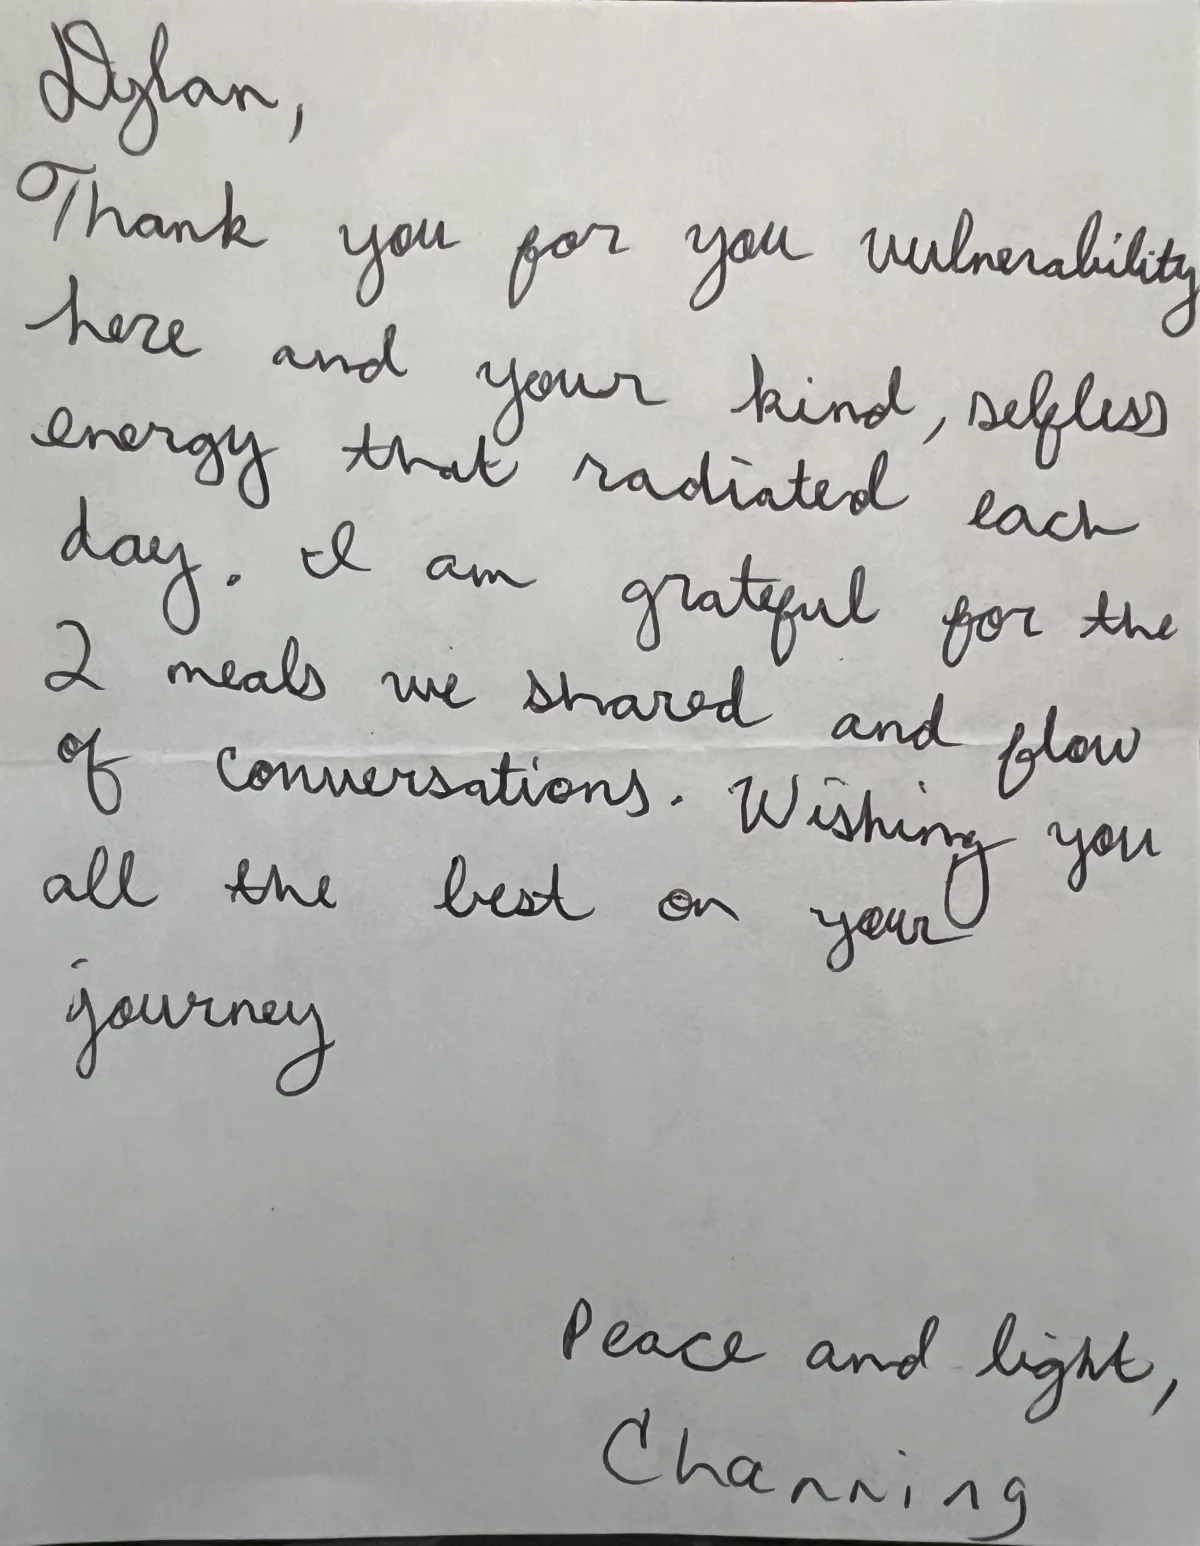 Dylan,
Thank you for you vulnerability
here and your kind, selfless
energy that radiated each
day. I am grateful for the
2 meals we shared and flow
of conversations. Wishing you
all the best on your
journey
Peace and light,
Channing